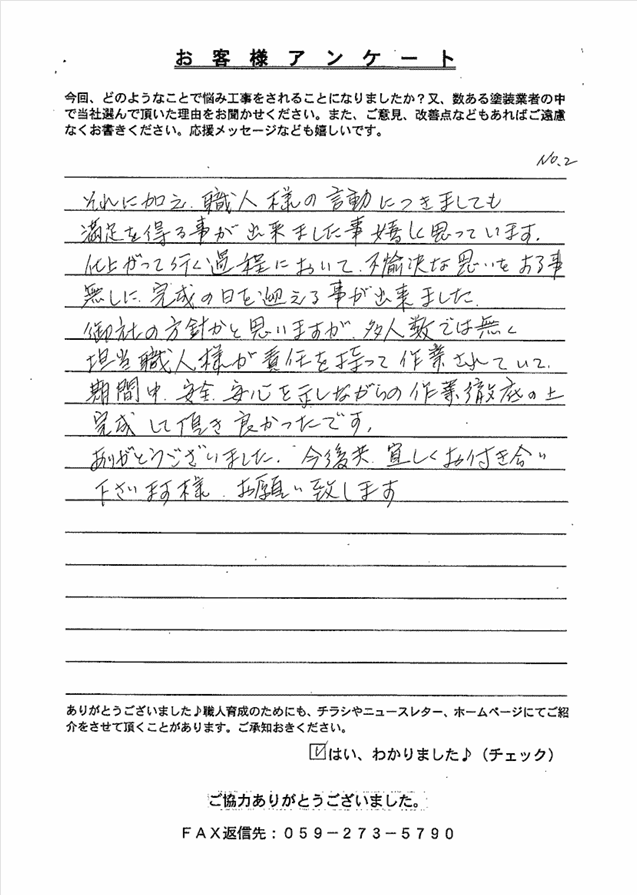 お客様アンケート
今回、どのようなことで悩み工事をされることになりましたか？又、数ある塗装業者の中
で当社選んで頂いた理由をお聞かせください。また、ご意見、改善点などもあればご遠慮
なくお書きください。応援メッセージなども嬉しいです。
No.2
それに加え、職人様の言動につきましても
満足を得る事が出来ました事嬉しく思っています。
仕上がって行く過程において、不愉快な思いをする事
無しに、完成の日を迎える事が出来ました。
御社の方針かと思いますが、多人数では無く
担当職人様が責任を持って作業されていて、
期間中、安全、安心を示しながらの作業徹底の上
完成して頂き良かったです。
ありがとうございました。今後共、宜しくお付き合い
下さいます様、お願い致します
ありがとうございました♪職人育成のためにも、チラシやニュースレター、ホームページにてご紹
介をさせて頂くことがあります。ご承知おきください。
☑はい、わかりました♪（チェック）
ご協力ありがとうございました。
FAX返信先：059－273－5790